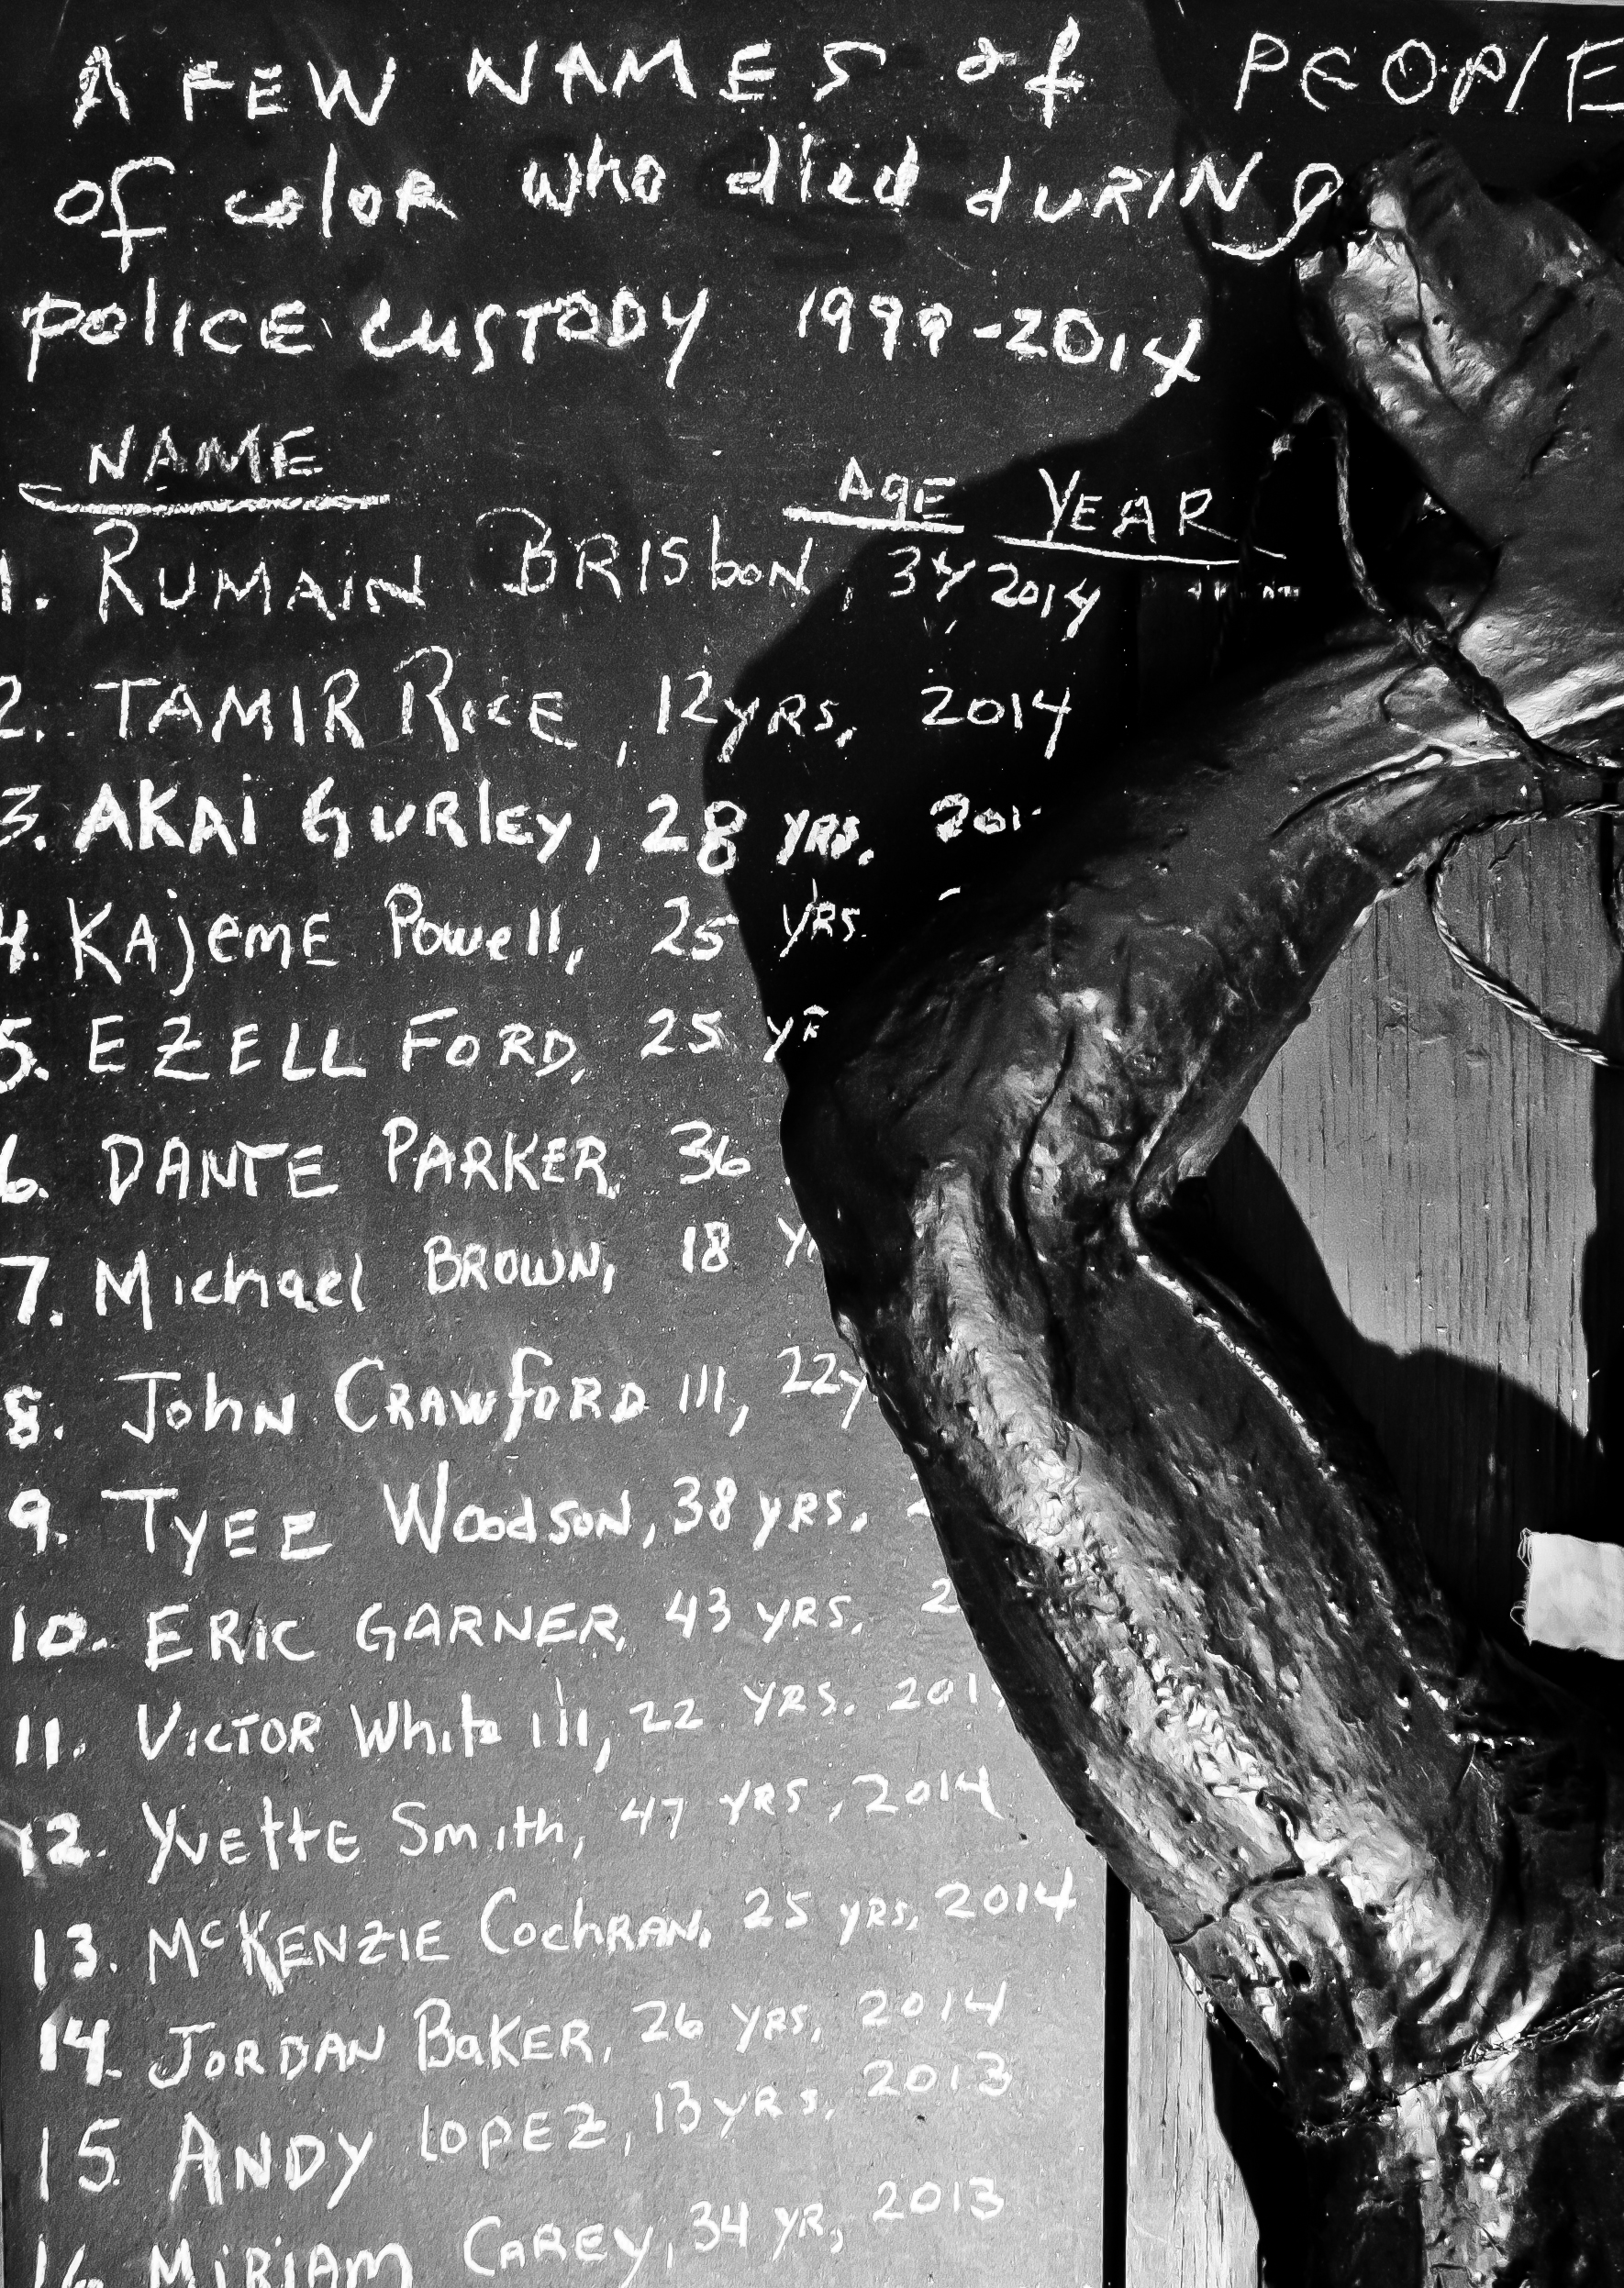 A FEW NAMES of PEOPLE
of color who died during
police custody 1999-2014
NAME AGE YEAR
1. RUMAIN BRISbON, 34 2014
2. TAMIR RICE, 12 yRS, 2014
3. AKAi GURley, 28 yRS. 201
4. KAjemE Powell, 25 yRS.
5. EZELL FORD, 25 yR
6. DANTE PARKER, 36
7. Michael BROWN, 18 y
8. John CRAWfORD III, 22y
9. TyEE Woodson, 38 yRS, 2
10. ERIC GARNER, 43 yRS, 2
11. VICTOR White III, 22 yRS. 201
12. YvettE Smith, 47 yRS, 2014
13. McKENZIE CochRAN, 25 yRS, 2014
14. JORDAN BaKER, 26 yRS, 2014
15. ANDY LOPEZ, 13 yRS, 2013
16 MiRiAM CAREy, 34 yR, 2013